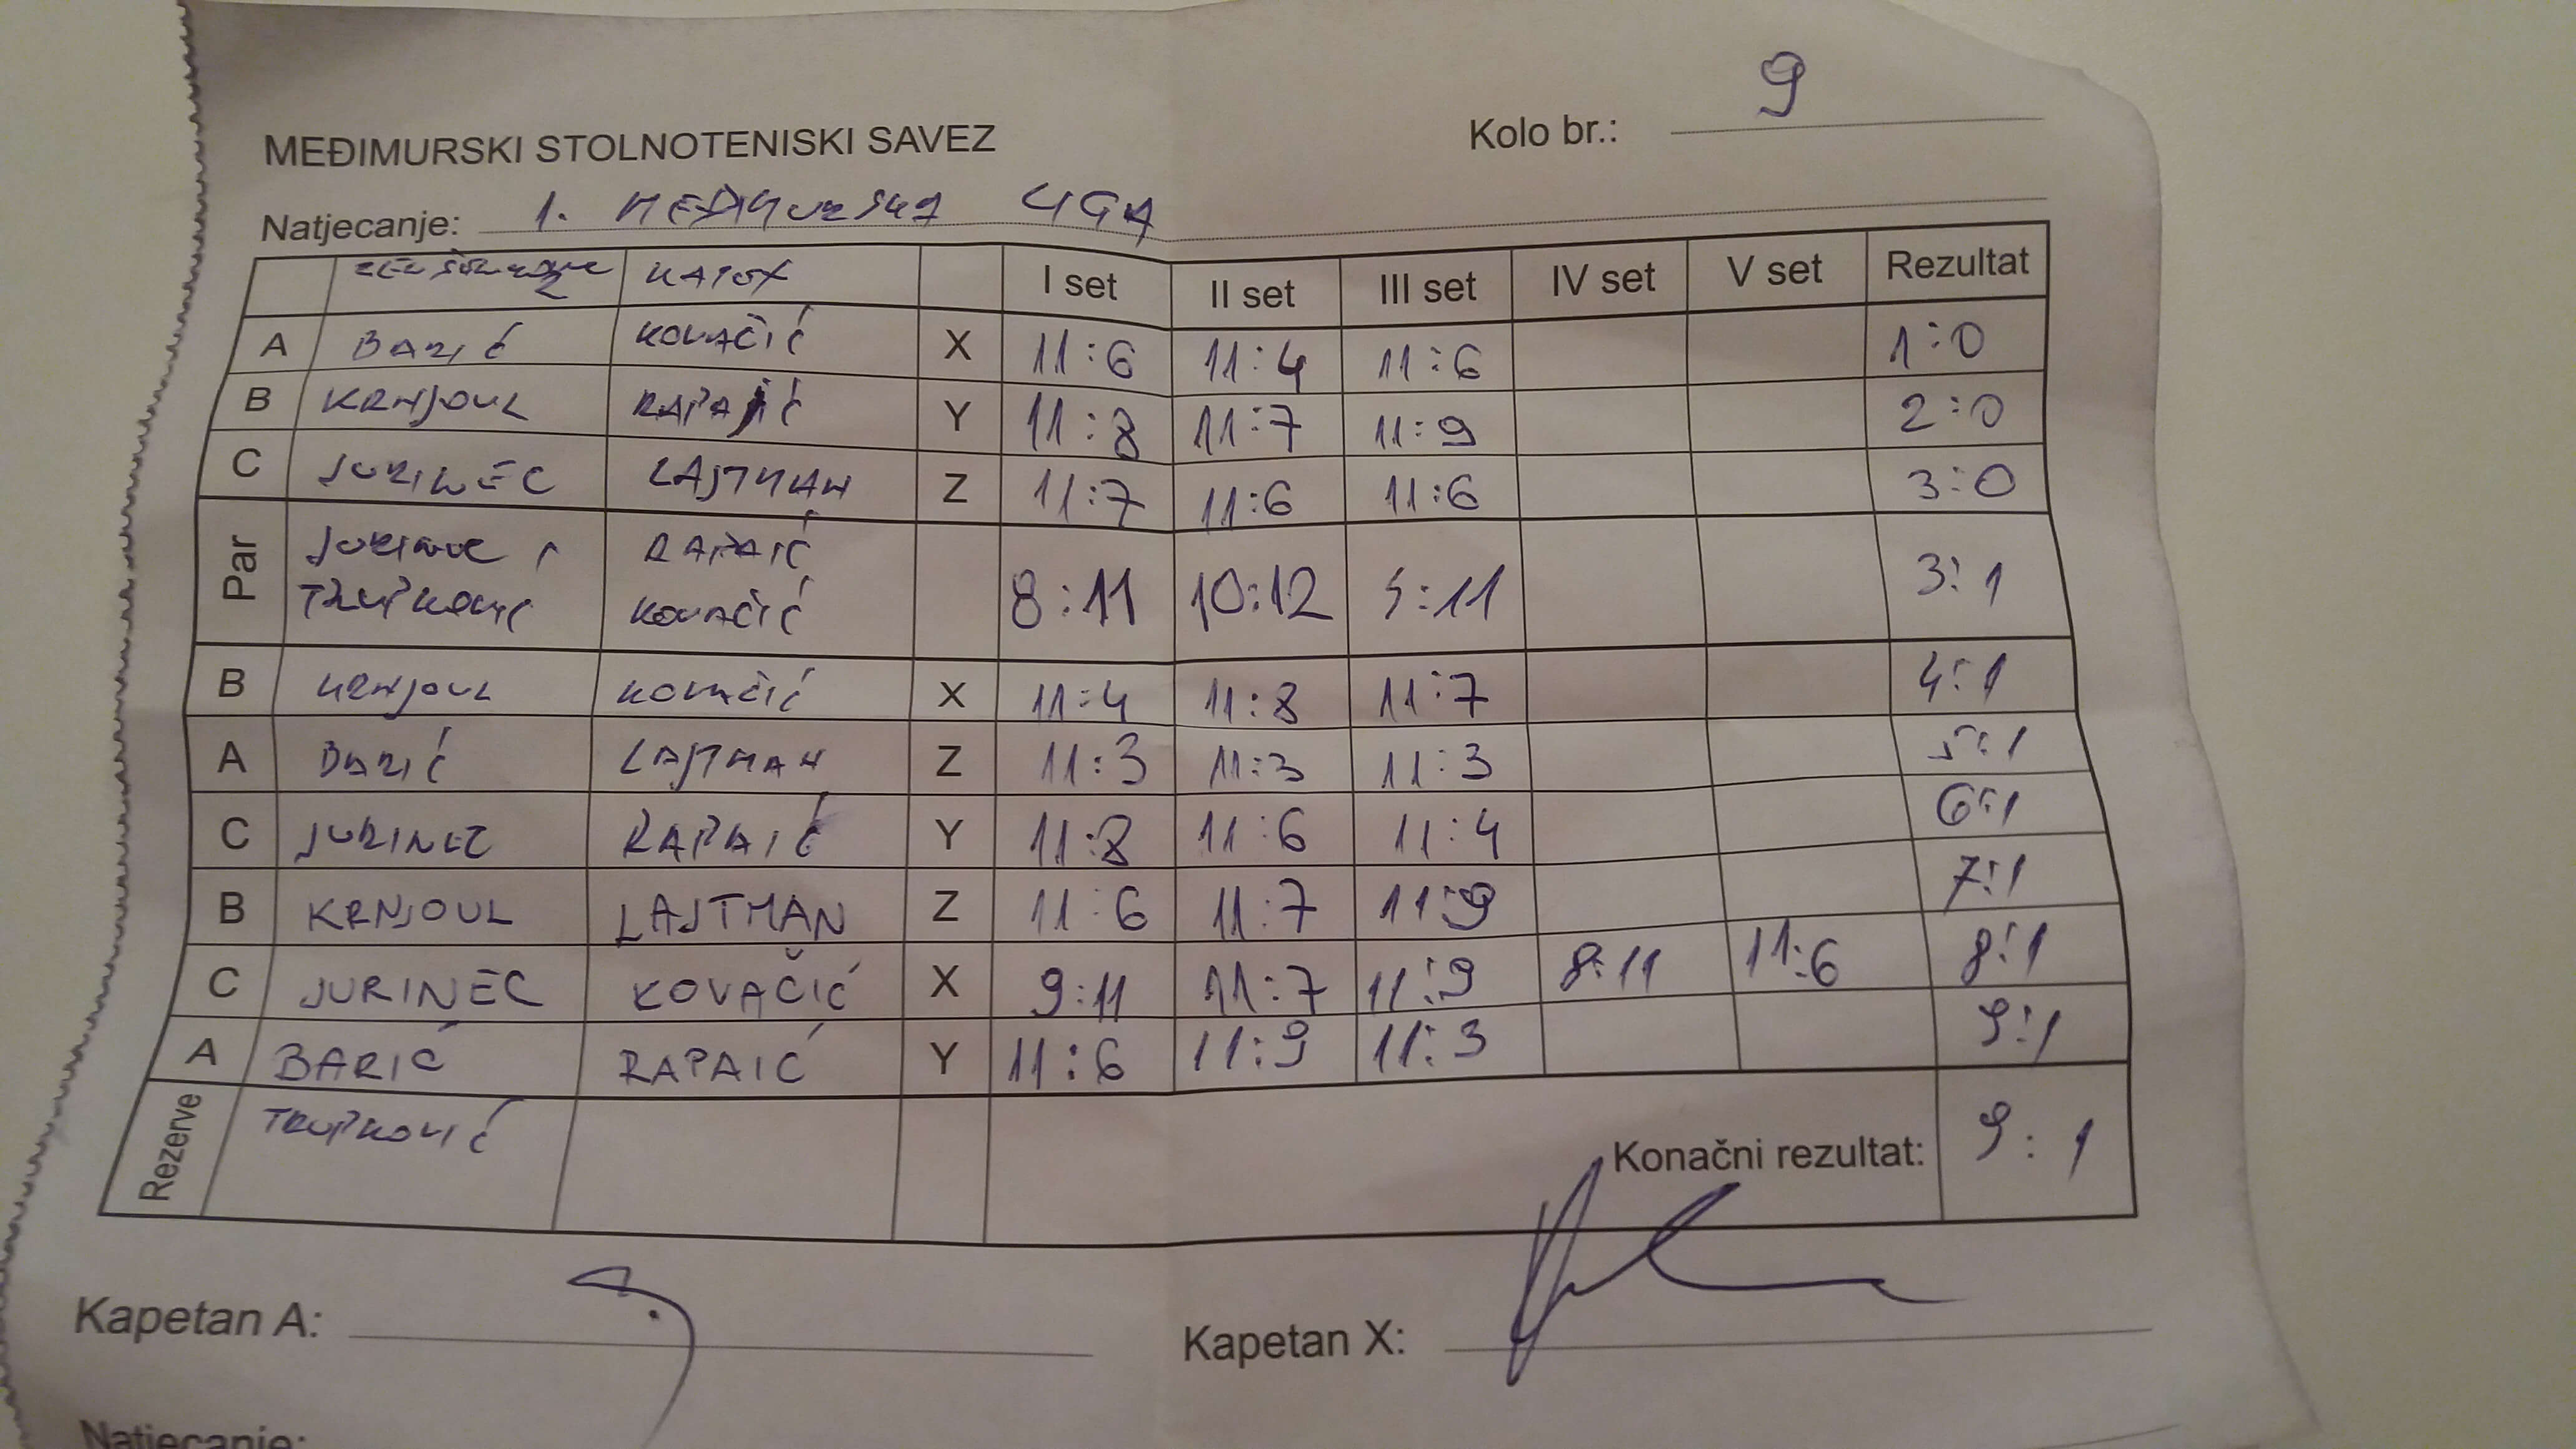 Kolo br.: 9
MEĐIMURSKI STOLNOTENISKI SAVEZ
Natjecanje: 1. MEĐIMURSKA LIGA
I set II set III set IV set V set Rezultat
A BARIĆ KOVAČIĆ X 11:6 11:4 11:6 1:0
B KRNJOUL RAPAIĆ Y 11:8 11:7 11:9 2:0
C JURINEC LAJTMAN Z 11:7 11:6 11:6 3:0
Par JURINEC i RAPAIĆ 8:11 10:12 5:11 3:1
TRUPKOVIĆ KOVAČIĆ
B KRNJOUL KOVAČIĆ X 11:4 11:8 11:7 4:1
A BARIĆ LAJTMAN Z 11:3 11:3 11:3 5:1
C JURINEC RAPAIĆ Y 11:8 11:6 11:4 6:1
B KRNJOUL LAJTMAN Z 11:6 11:7 11:9 7:1
C JURINEC KOVAČIĆ X 9:11 11:7 11:9 8:11 11:6 8:1
A BARIĆ RAPAIĆ Y 11:6 11:9 11:3 9:1
Rezerve TRUPKOVIĆ Konačni rezultat: 9:1
Kapetan A: Kapetan X:
Natjecanje: